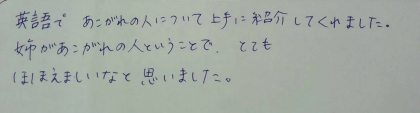 英語で あこがれの人について上手に紹介してくれました。
姉があこがれの人ということで、とても
ほほえましいなと思いました。